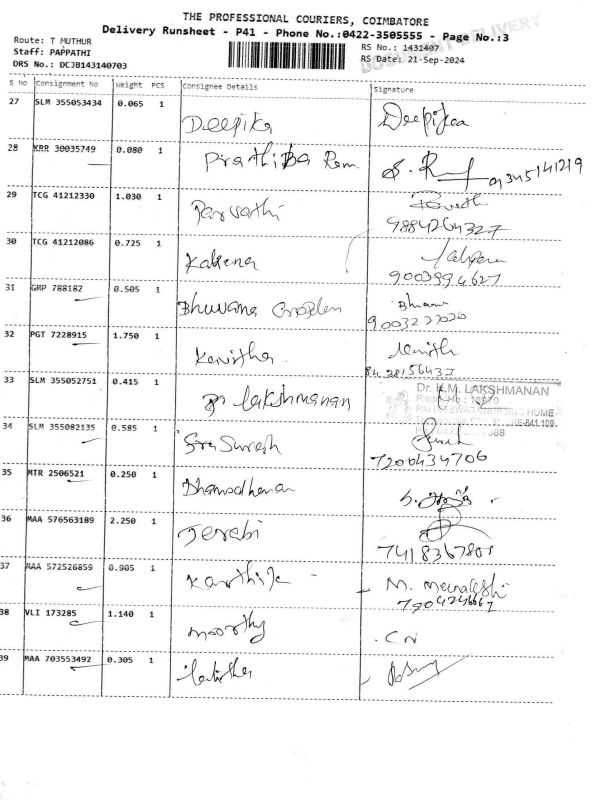 THE PROFESSIONAL COURIERS, COIMBATORE
DOCUMENT DELIVERY
Delivery Runsheet - P41 - Phone No.:0422-3505555 - Page No.:3
Route: T MUTHUR
RS No.: 1431407
Staff: PAPPATHI
RS Date: 21-Sep-2024
DRS No.: DCJB143140703
S No Consignment No Weight PCS Consignee Details Signature
27 SLM 355053434 0.065 1 Deepika Deepikaa
28 KRR 30035749 0.080 1 Prathiba Ram 9345141219
29 TCG 41212330 1.030 1 Parvathi
9884264327
30 TCG 41212086 0.725 1
9003994627
31 GMP 788182 0.505 1 Bhuvana
9003227020
32 PGT 7228915 1.750 1 Kavistha
8428156437
33 SLM 355052751 0.415 1 Dr Lakshmanan Dr. K.M. LAKSHMANAN
NURSING HOME
641 109
34 SLM 355082135 0.585 1 Suresh
7200434706
35 MTR 2506521 0.250 1 Dhamodharan
36 MAA 576563189 2.250 1
7418367801
37 MAA 572526859 0.905 1 Karthik M.
38 VLI 173285 1.140 1 moorthy CN
39 MAA 703553492 0.305 1